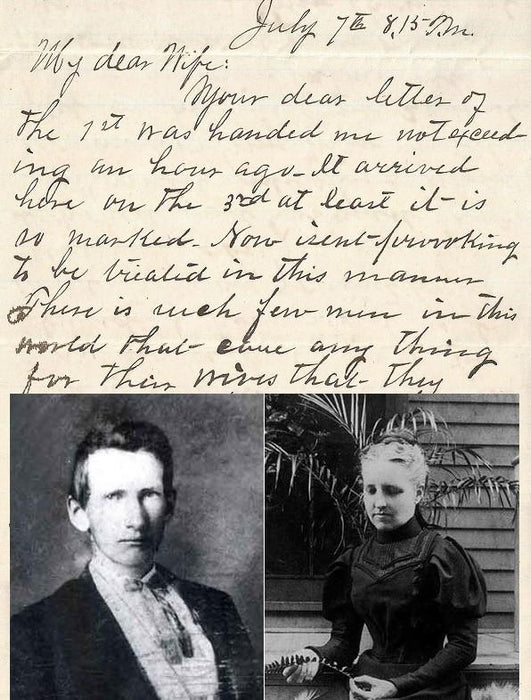 July 7th 8,15 P.m.
My dear Wife:
Your dear letter of
the 1st was handed me not exceed
ing an hour ago. It arrived
here on the 3rd at least it is
so marked. Now isent provoking
to be treated in this manner
There is such few men in this
world that care any thing
for their wives that they